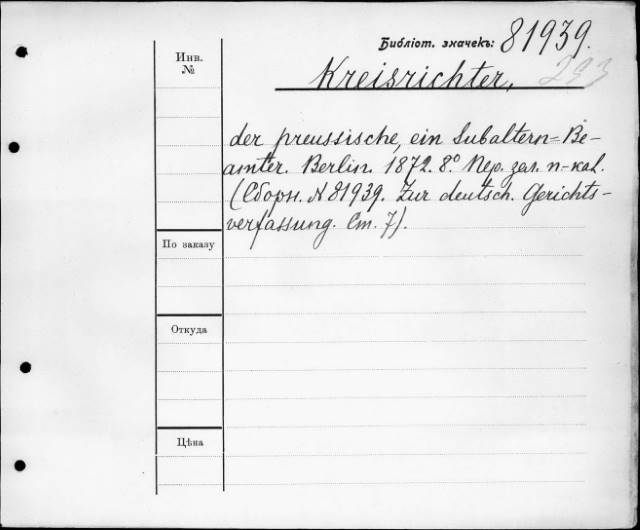 Библіот. значекъ: 81939.
Инв.
№
Kreisrichter, 293
der preussische, ein Subaltern=Be-
amter. Berlin. 1872. 8º. Пер. зал. п-кал.
(Сборн. № 81939. Zur deutsch. Gerichts-
verfassung. Ст. 7).
По заказу
Откуда
Цѣна